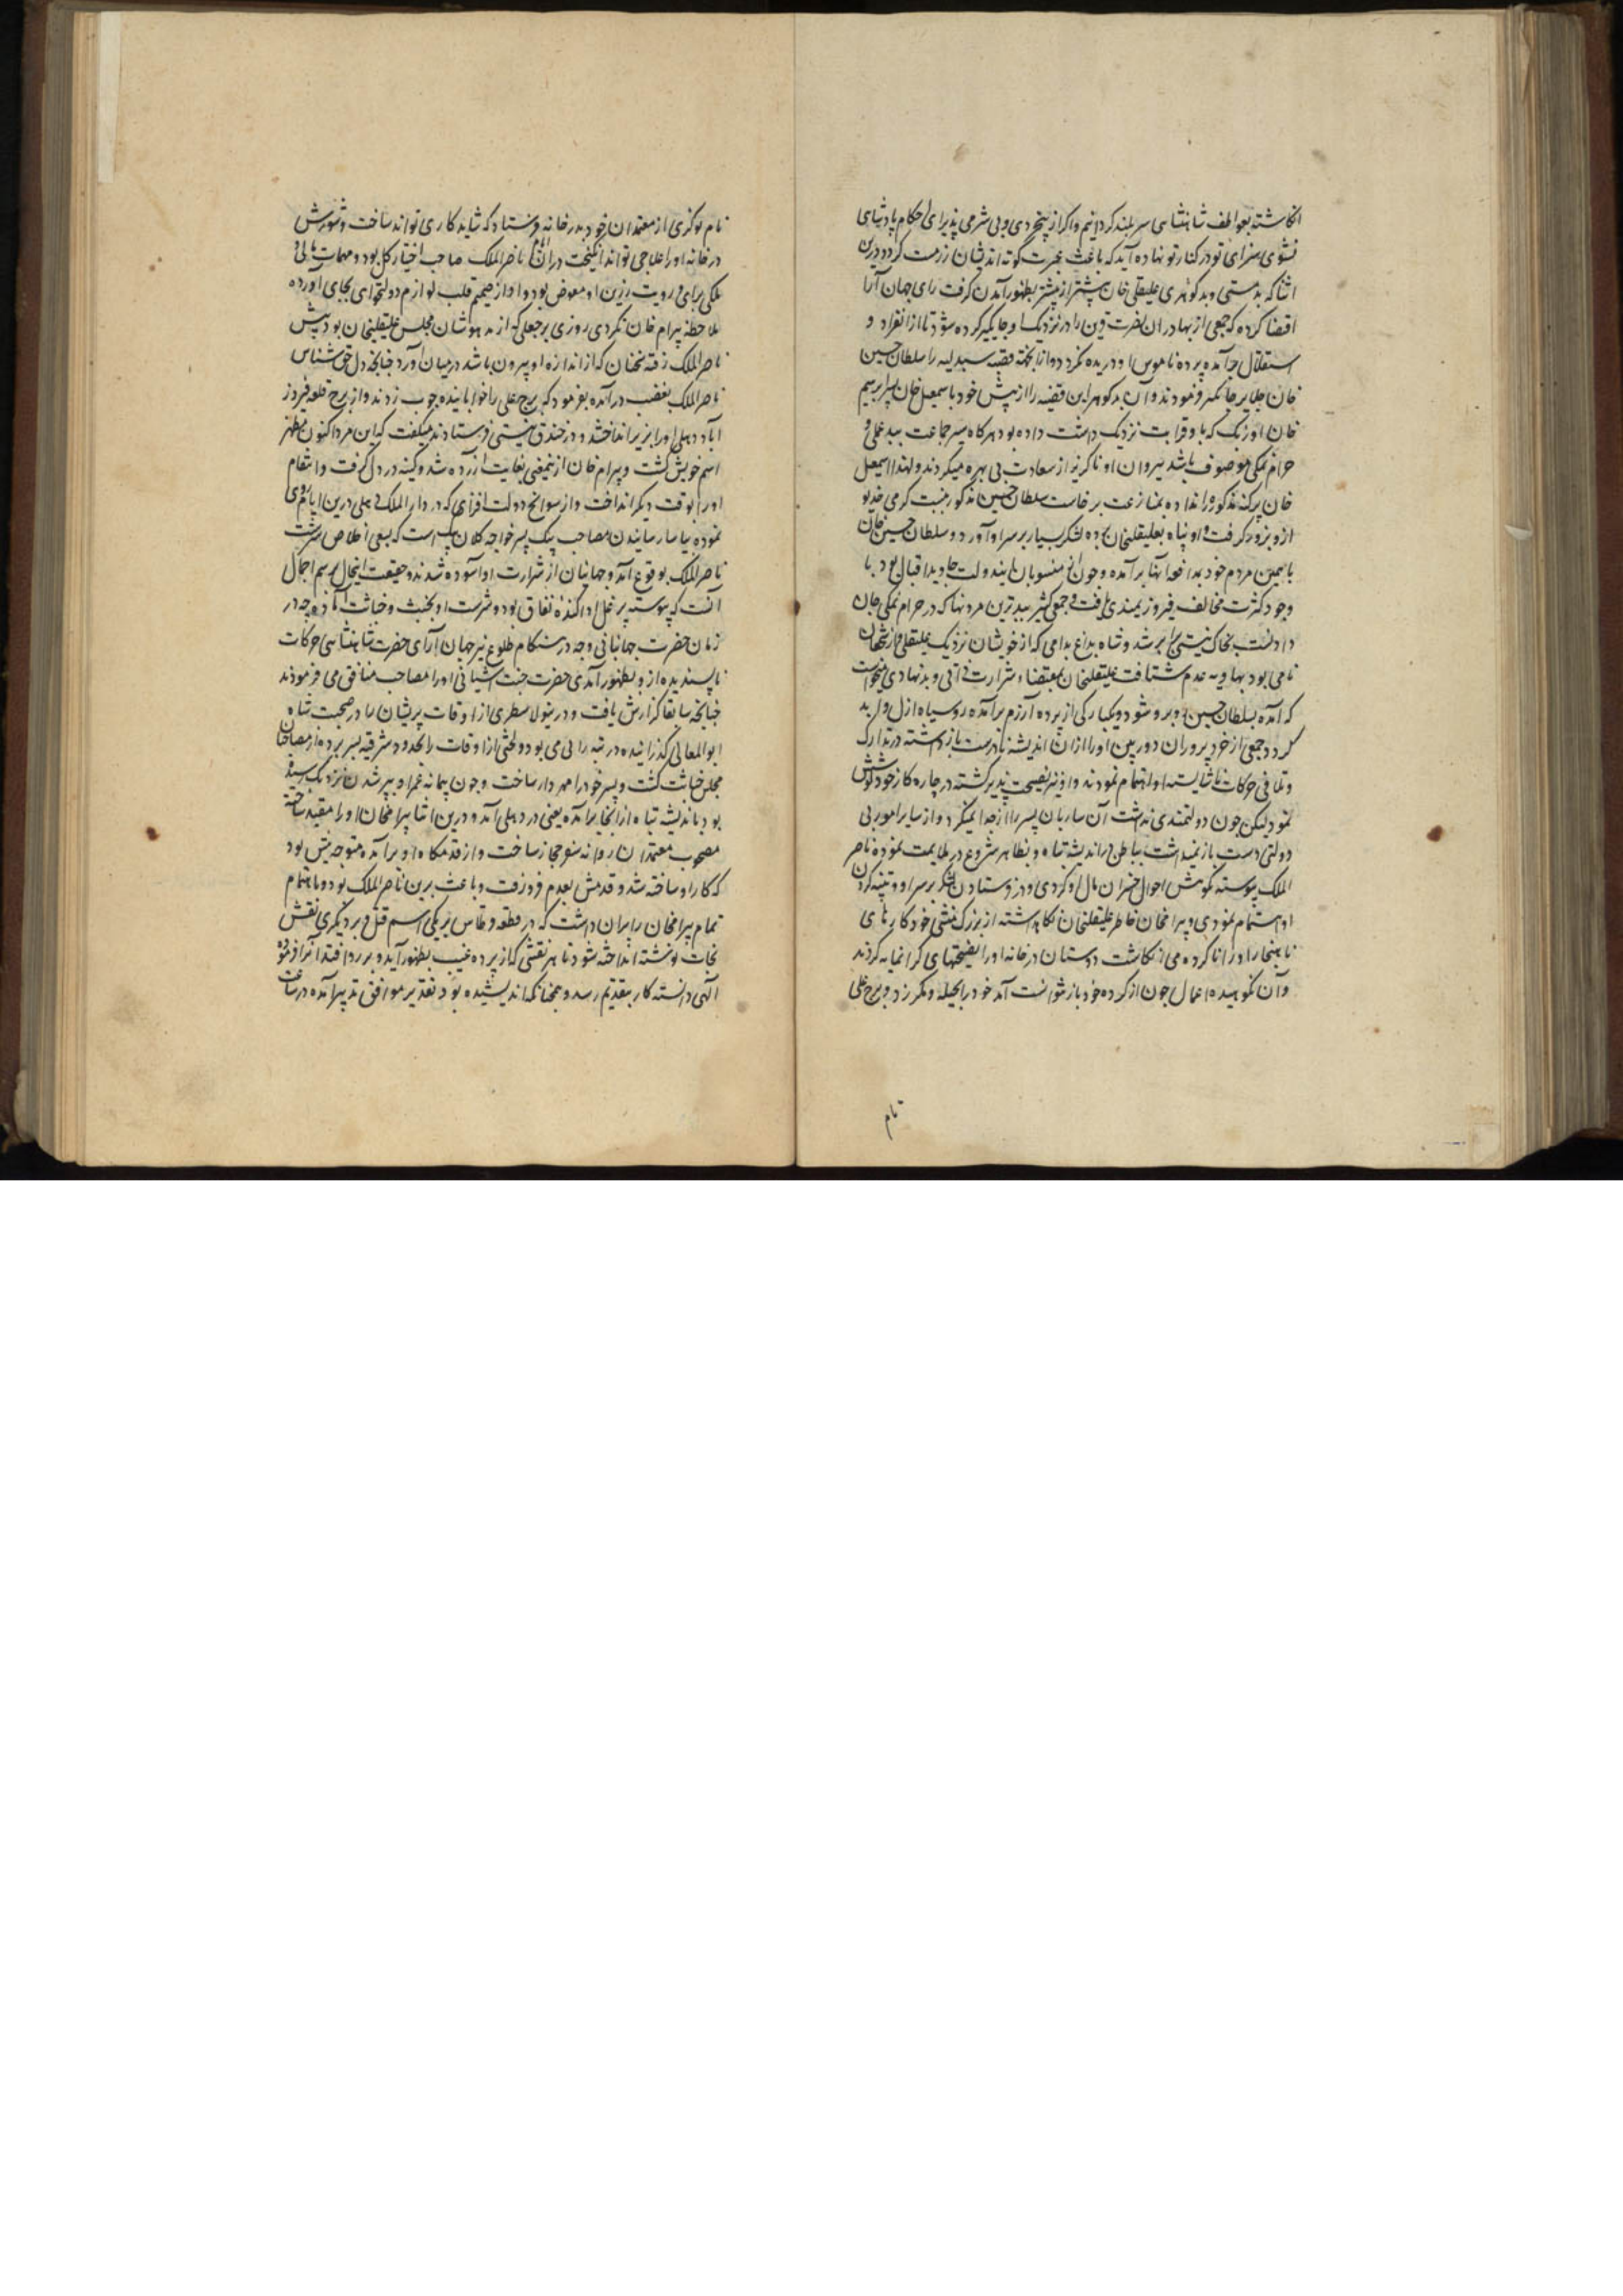 انکاشته بعواطف شاهنشاهی سربلند گردانیم واگر از بیخردی وبی شرمی پذیرای احکام پادشاهی
نشوی سزای تو در کنار تو نهاده آید که باعث عبرت کوته اندیشان زرمست گردد درین
اثنا که بدمستی وبدکوهری علیقلی خان بیشتر از پیشتر بظهور آمدن گرفت رای جهان آرا
اقتضا کرده که جمعی از بهادران نصرت قرین را در نزدیک او جایگیر کرده شود تا از انفراد و
استقلال برآمده پرده ناموس او دریده نگردد وازانجمله قصبه سندیله را سلطان حسین
خان جلایر جایگیر فرمودند وآن بدکوهر این قضیه را از پیش خود باسمعیل خان پسر ابرهیم
خان اوزبک که باو قرابت نزدیک داشت داده بود هرگاه سر جماعت ببدعملی و
حرام نمکی موصوف باشد پیروان او ناگزیر از سعادت بی بهره میگردند ولهذا اسمعیل
خان پرگنه مذکوره را نداده بمنازعت برخاست سلطان حسین مذکور
ازو بزور گرفت واو پناه بعلیقلیخان برده لشکر بسیار بر سر او آورد وسلطان حسین خان
باهمین مردم خود بمدافعه آنها برآمده وچون از منسوبان این دولت جاوید اقبال بود با
وجود کثرت مخالف فیروزمندی یافت وجمعی کثیر ببدترین مردنها که در حرام نمکی جان
دادنست بخاک نیستی برابر شد وشاه بداغ بدامی که از خویشان نزدیک علیقلی وازشجعان
نامی بود بهاویه عدم شتافت علیقلیخان بمقتضاء شرارت ذاتی وبدنهادی میخواست
که آمده بسلطان حسین روبرو شود ویکبارگی از پرده آزرم برآمده روسیاه ازل وابد
گردد جمعی از خردپروران دوربین او را ازان اندیشه نادرست بازداشته در تدارک
وتلافی حرکات ناشایسته او اهتمام نمودند واو نیز نصیحت پذیر گشته در چاره کار خود کوشش
نمود لیکن چون دولتمندی نداشت آن ساربان پسر را ازخود جدا نمیکرد واز سایر امور بی
دولتی دست باز نمیداشت بباطن در اندیشه تباه وبظاهر شروع در ملایمت نموده ناصر
الملک پیوسته نکوهش احوال خسران مآل او کردی ودر فرستادن لشکر بر سر او وتنبیه کردن
او اهتمام نمودی وبیرامخان خاطر علیقلیخان نگاهداشته از بزرگ منشی خود کارهای
ناهنجار او را ناکرده می انگاشت دوستان در خانه او را نصیحتهای گرانمایه کردند
وآن نکوهیده اعمال چون از کرده خود باز نتوانست آمد خود را بحیله ومکر زد وبرج علی
نام
نام نوکری از معتمدان خود بدرخانه فرستاد که شاید کاری تواند ساخت وشورش
درخانه او را علاجی تواند انگیخت دران ایام ناصرالملک صاحب اختیار کل بود ومهمات مالی و
ملکی برای ورویت رزین او مفوض بود واو از صمیم قلب لوازم دولتخواهی بجای آورده
ملاحظه بیرام خان نکردی روزی برجعلی که از مدهوشان مجلس علیقلیخان بود پیش
ناصرالملک رفته سخنان که از اندازه او بیرون باشد درمیان آورد چنانچه دل حق شناس
ناصرالملک بغضب درآمده بفرمود که برج علی را خوابانیده چوب زدند واز برج قلعه فیروز
آباد دهلی او را بزیر انداختند ودر خندق نیستی فرستادند میگفت که این مرد اکنون مظهر
اسم خویش گشت وبیرام خان ازینمعنی بغایت آزرده شد وکینه در دل گرفت وانتقام
او را بوقت دیگر انداخت واز سوانح دولت افزای که در دارالملک دهلی درین ایام روی
نموده بیاسا رسانیدن مصاحب بیک پسر خواجه کلان بیک است که بسعی اخلاص سرشت
ناصرالملک بوقوع آمد وجهانیان از شرارت او آسوده شدند وحقیقت اینحال برسم اجمال
آنست که پیوسته پرغل واکنده نفاق بود وشرست او بخبث وخباثت آماده چه در
زمان حضرت جهانبانی وچه در هنگام طلوع نیر جهان آرای حضرت شاهنشاهی حرکات
ناپسندیده ازو بظهور آمدی حضرت جنت آشیانی او را مصاحب منافق می فرمودند
چنانچه سابقا گزارش یافت ودرینولا سطری از اوقات پریشان را در صحبت شاه
ابوالمعالی گذرانیده در تبه رائی می بود ولختی از اوقات را بحدود شرقیه بسر برده از مصاحبان
مجلس خباثت گشت وپسر خود را مهردار ساخت وچون پیمانه عمر او بپر شدن نزدیک رسیده
بود باندیشه تباه از انجا برآمده یعنی در دهلی آمد ودرین اثنا بیرامخان او را مقید ساخته
مصحوب معتمدان روانه سفر حجاز ساخت واز قدمگاه او برآمده متوجه پیش بود
که کار او ساخته شد وقدمش بعدم فرو رفت وباعث برین ناصرالملک بود وباهتمام
تمام بیرامخان را بران داشت که در قطعه قرطاس بر یکی اسم قتل وبر دیگری نقش
نجات نوشته انداخته شود تا هر نقشی که از پرده غیب بظهور آید وبر رو افتد آنرا فرموده
الهی دانسته کار بتقدیم رسد وهمچنانکه اندیشیده بود تقدیر موافق تدبیر آمده در ساعت